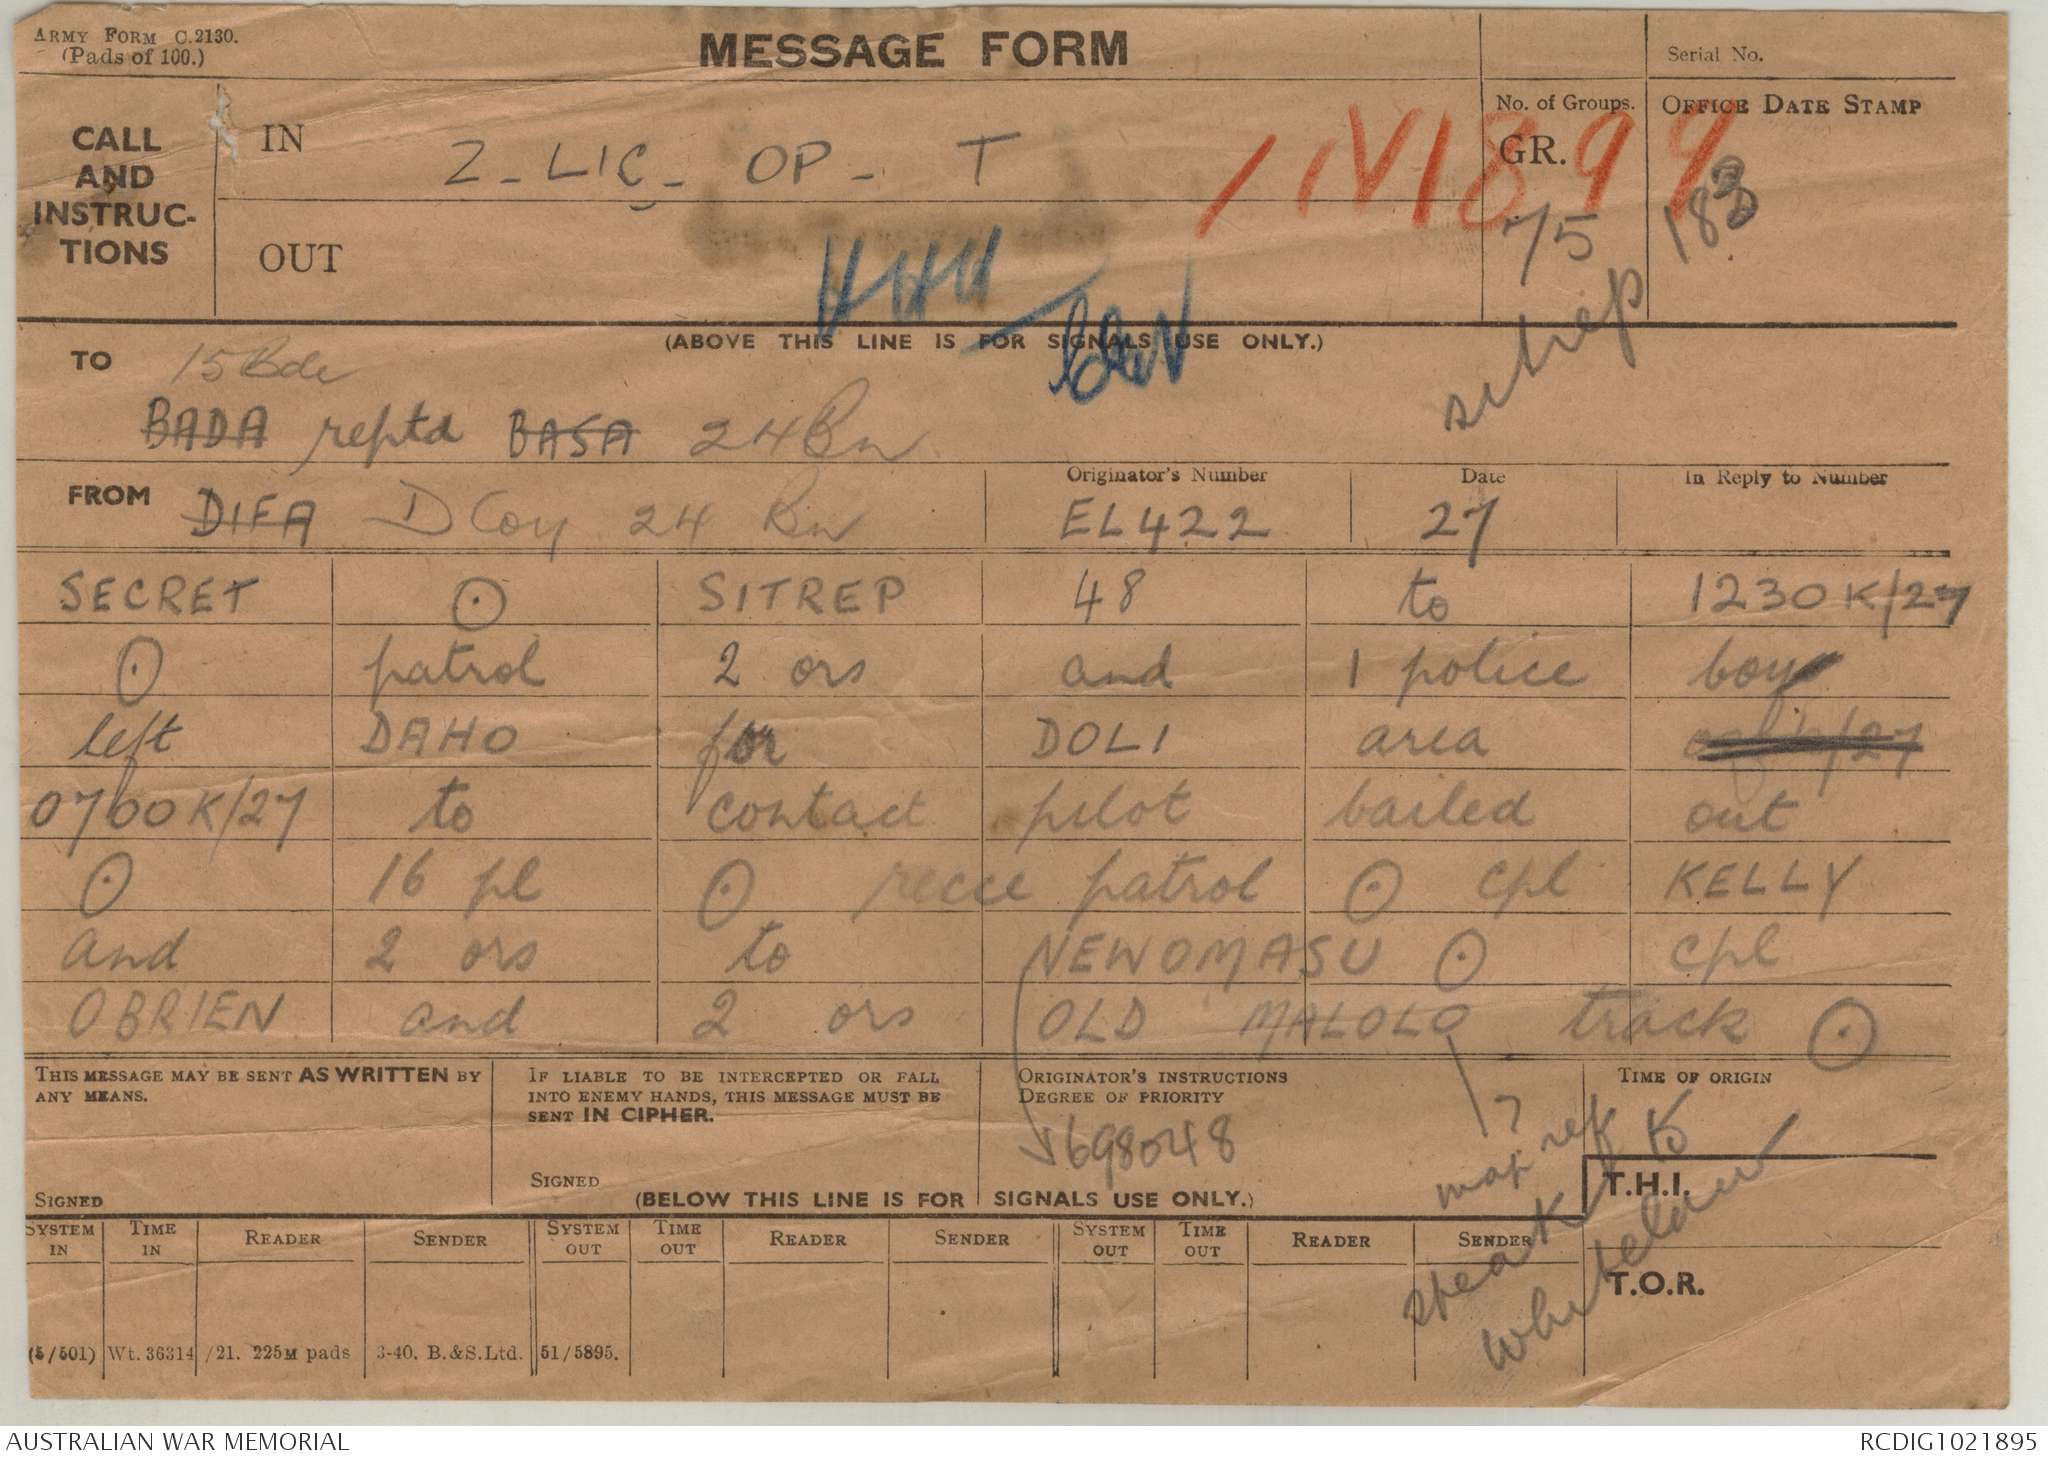 ARMY FORM C.2130.
(Pads of 100.)
MESSAGE FORM
Serial No.
CALL
AND
INSTRUC-
TIONS
IN
Z - LIC - OP - T
No. of Groups.
GR.
75
OFFICE DATE STAMP
IN1899
183
OUT
sitrep
(ABOVE THIS LINE IS FOR SIGNALS USE ONLY.)
TO
15 Bde
BADA reptd BASA 24 Bn
FROM
DIFA D Coy 24 Bn
Originator's Number
EL422
Date
27
In Reply to Number
SECRET ⊙ SITREP 48 to 1230K/27
⊙ patrol 2 ors and 1 police boy
left DAHO for DOLI area
0700K/27 to contact pilot bailed out
⊙ 16 pl ⊙ recce patrol ⊙ cpl KELLY
and 2 ors to NEWOMASU ⊙ cpl
OBRIEN and 2 ors OLD MALOLO track ⊙
THIS MESSAGE MAY BE SENT AS WRITTEN BY
ANY MEANS.
SIGNED
IF LIABLE TO BE INTERCEPTED OR FALL
INTO ENEMY HANDS, THIS MESSAGE MUST BE
SENT IN CIPHER.
SIGNED
ORIGINATOR'S INSTRUCTIONS
DEGREE OF PRIORITY
698048
?
map ref
speak to
Whitelaw
TIME OF ORIGIN
T.H.I.
T.O.R.
(BELOW THIS LINE IS FOR SIGNALS USE ONLY.)
SYSTEM IN
TIME IN
READER
SENDER
SYSTEM OUT
TIME OUT
READER
SENDER
SYSTEM OUT
TIME OUT
READER
SENDER
(5/501) Wt. 36314 /21. 225M pads 3-40. B.&S.Ltd. 51/5895.
AUSTRALIAN WAR MEMORIAL
RCDIG1021895